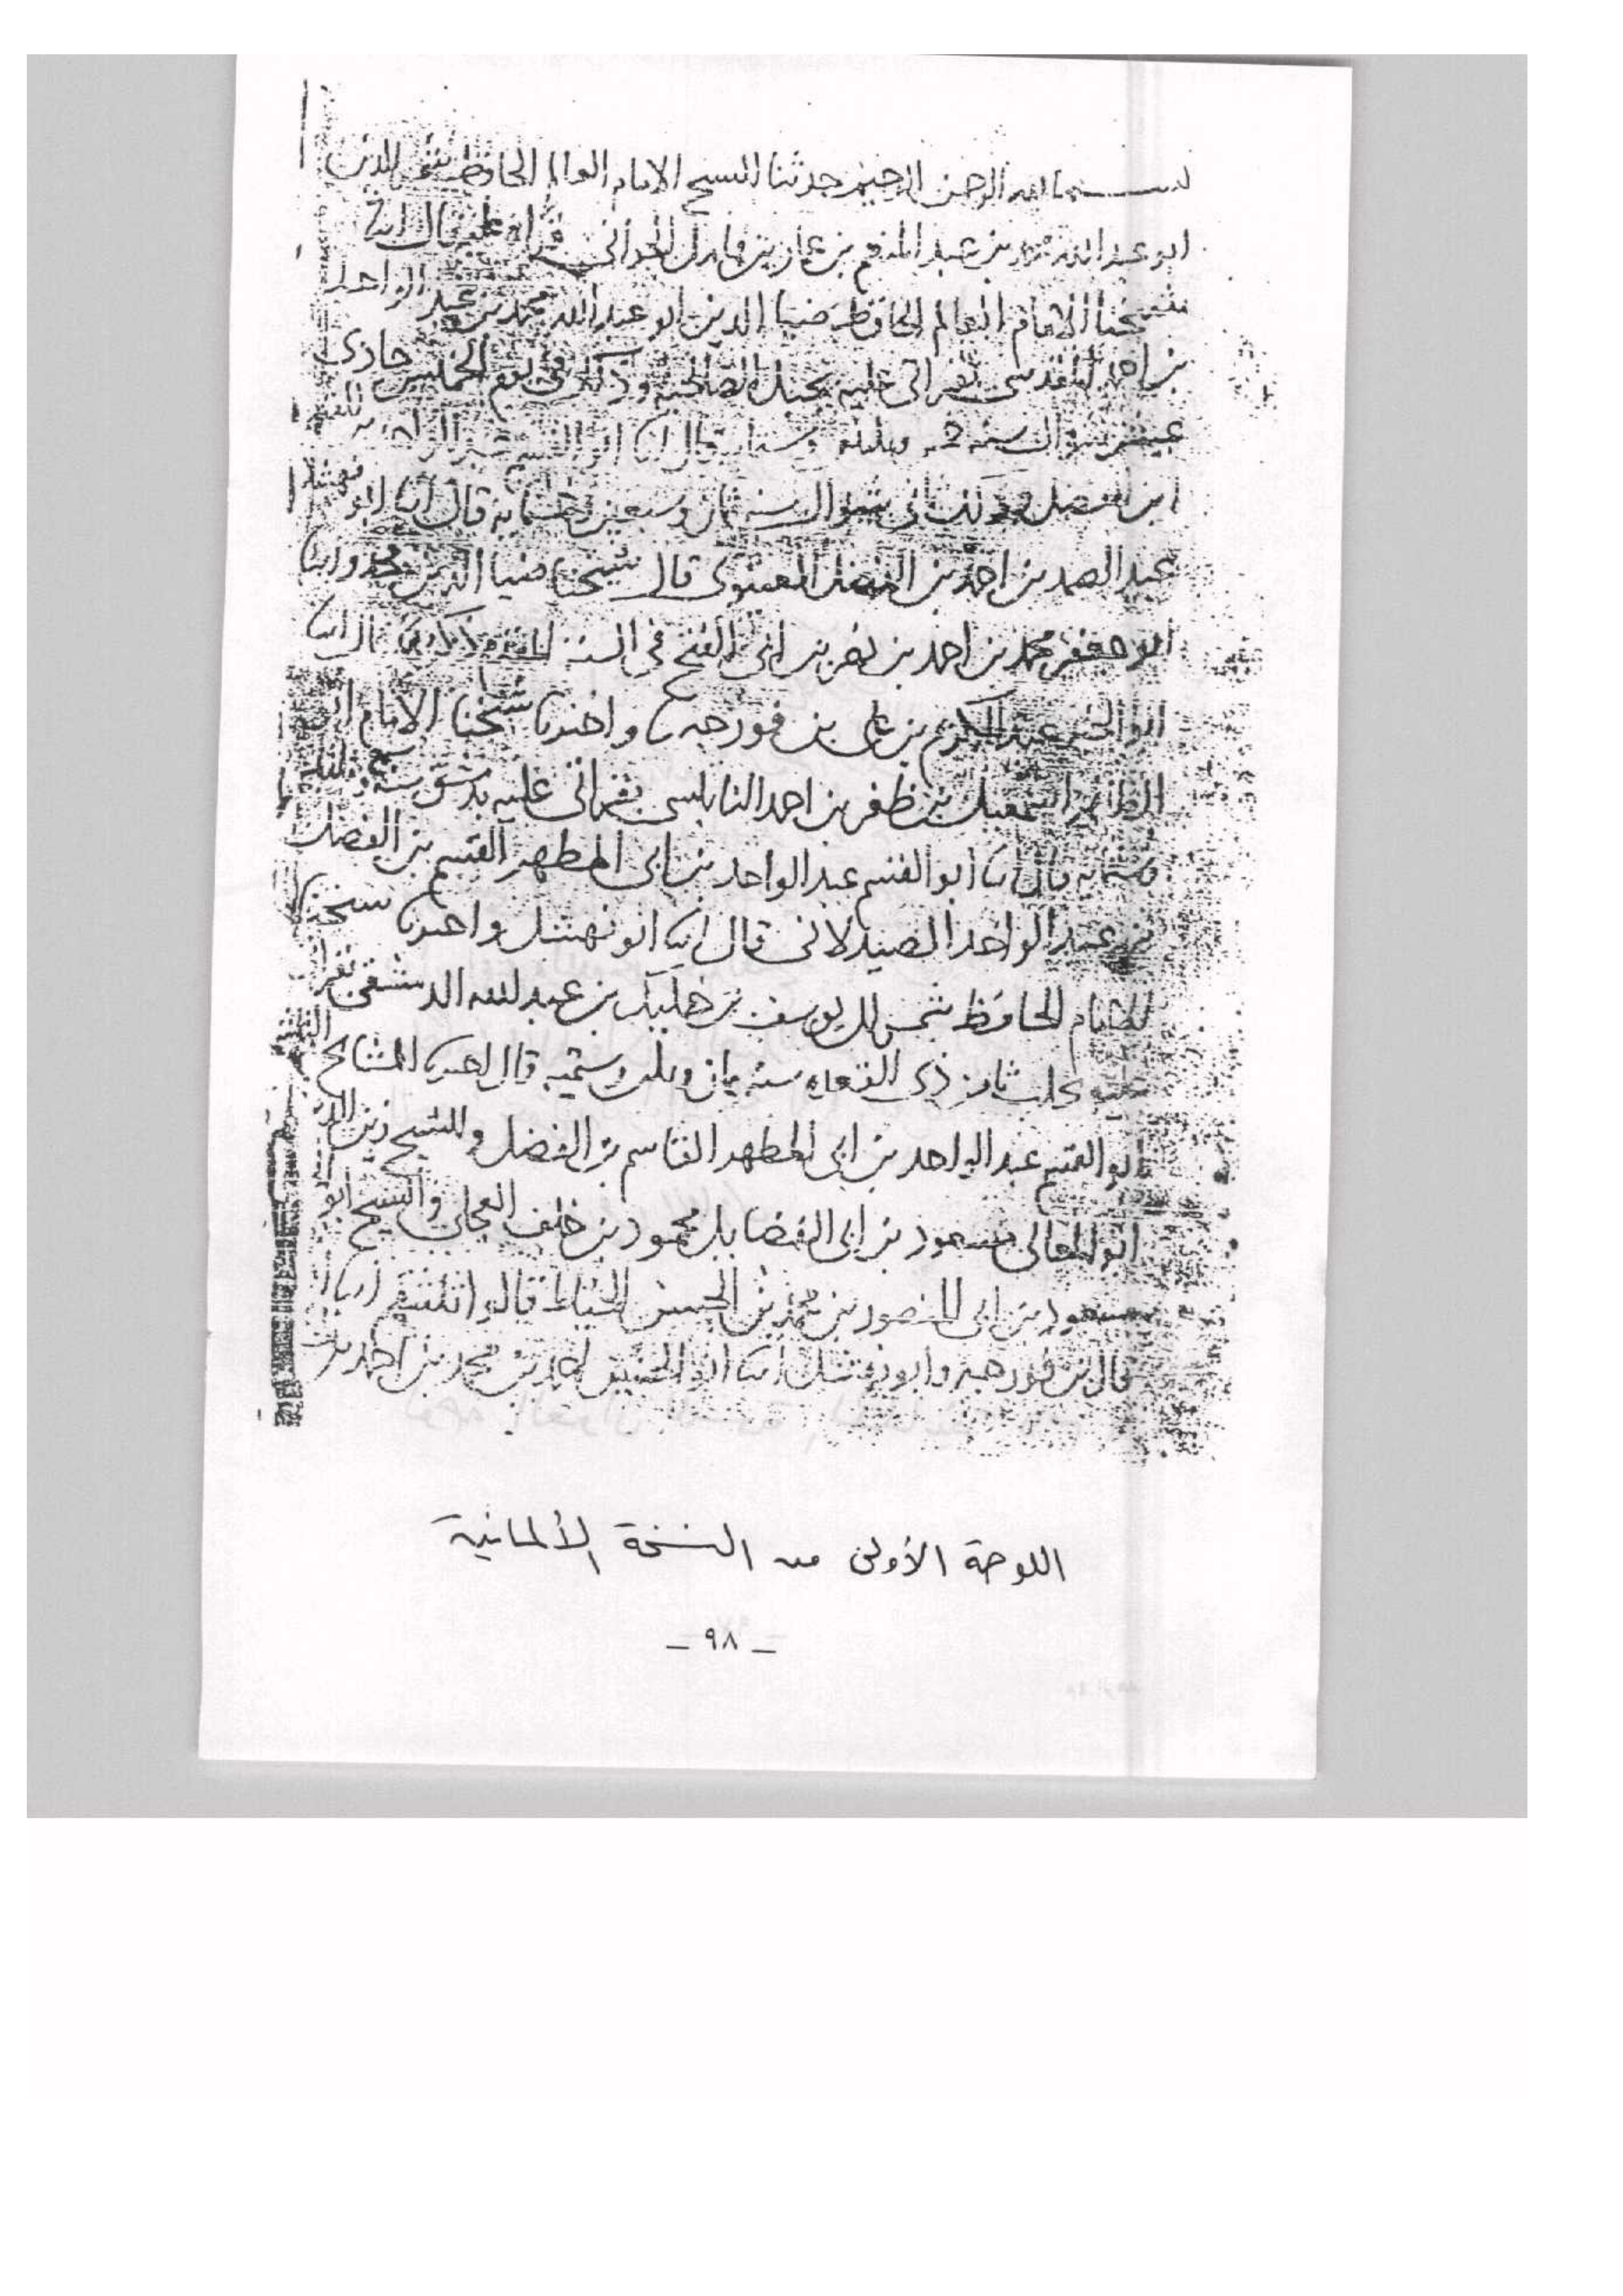 بسم الله الرحمن الرحيم حدثنا الشيخ الامام العالم الحافظ شمس الدين
ابو عبد الله محمد بن عبد المنعم بن عمار بن هامل الحراني قراه عليه قال انبا
شيخنا الامام العالم الحافظ ضيا الدين ابو عبد الله محمد بن عبد الواحد
بن احمد المقدسي بقراتي عليه بجبل الصالحية وذلك في يوم الخميس حادي
عشر شوال سنه وستمايه قال انا ابو القسم عبد الواحد بن القسم
ابن الفضل وذلك في شوال سنه ثمان وتسعين وخمسمايه قال انبا ابو نهشل
عبد الصمد بن احمد بن الفضل العنبري قال شيخنا ضيا الدين محمد وانبا
ابو جعفر محمد بن احمد بن نصر بن ابي الفتح في السنه المذكورة قال انبا
ابو الخير عبد الكريم بن علي بن فورجه ح واخبرنا شيخنا الامام ابو
الطاهر اسمعيل بن ظفر بن احمد النابلسي بقراتي عليه بدمشق سنه
وستمايه قال انا ابو القسم عبد الواحد بن ابي المطهر القسم بن الفضل
بن عبد الواحد الصيدلاني قال انا ابو نهشل واخبرنا شيخنا
الامام الحافظ شمس الدين يوسف بن خليل بن عبد الله الدمشقي بقراتي
عليه بحلب ثامن ذي القعده سنه ثمان وثلثين وستمية قال اخبرنا المشائخ
ابو القسم عبد الواحد بن ابي المطهر القاسم بن الفضل والشيخ زين الدين
ابو المعالي مسعود بن ابي الفضايل محمود بن خلف العجلي والشيخ ابو
مسعود بن ابي المنصور بن محمد بن الحسن الخياط قالوا ثلثتهم انبا
قال بن فورجه وابو نهشل انا ابو الحسين احمد بن محمد بن احمد بن
اللوحة الأولى من النسخة الألمانية
- ٩٨ -